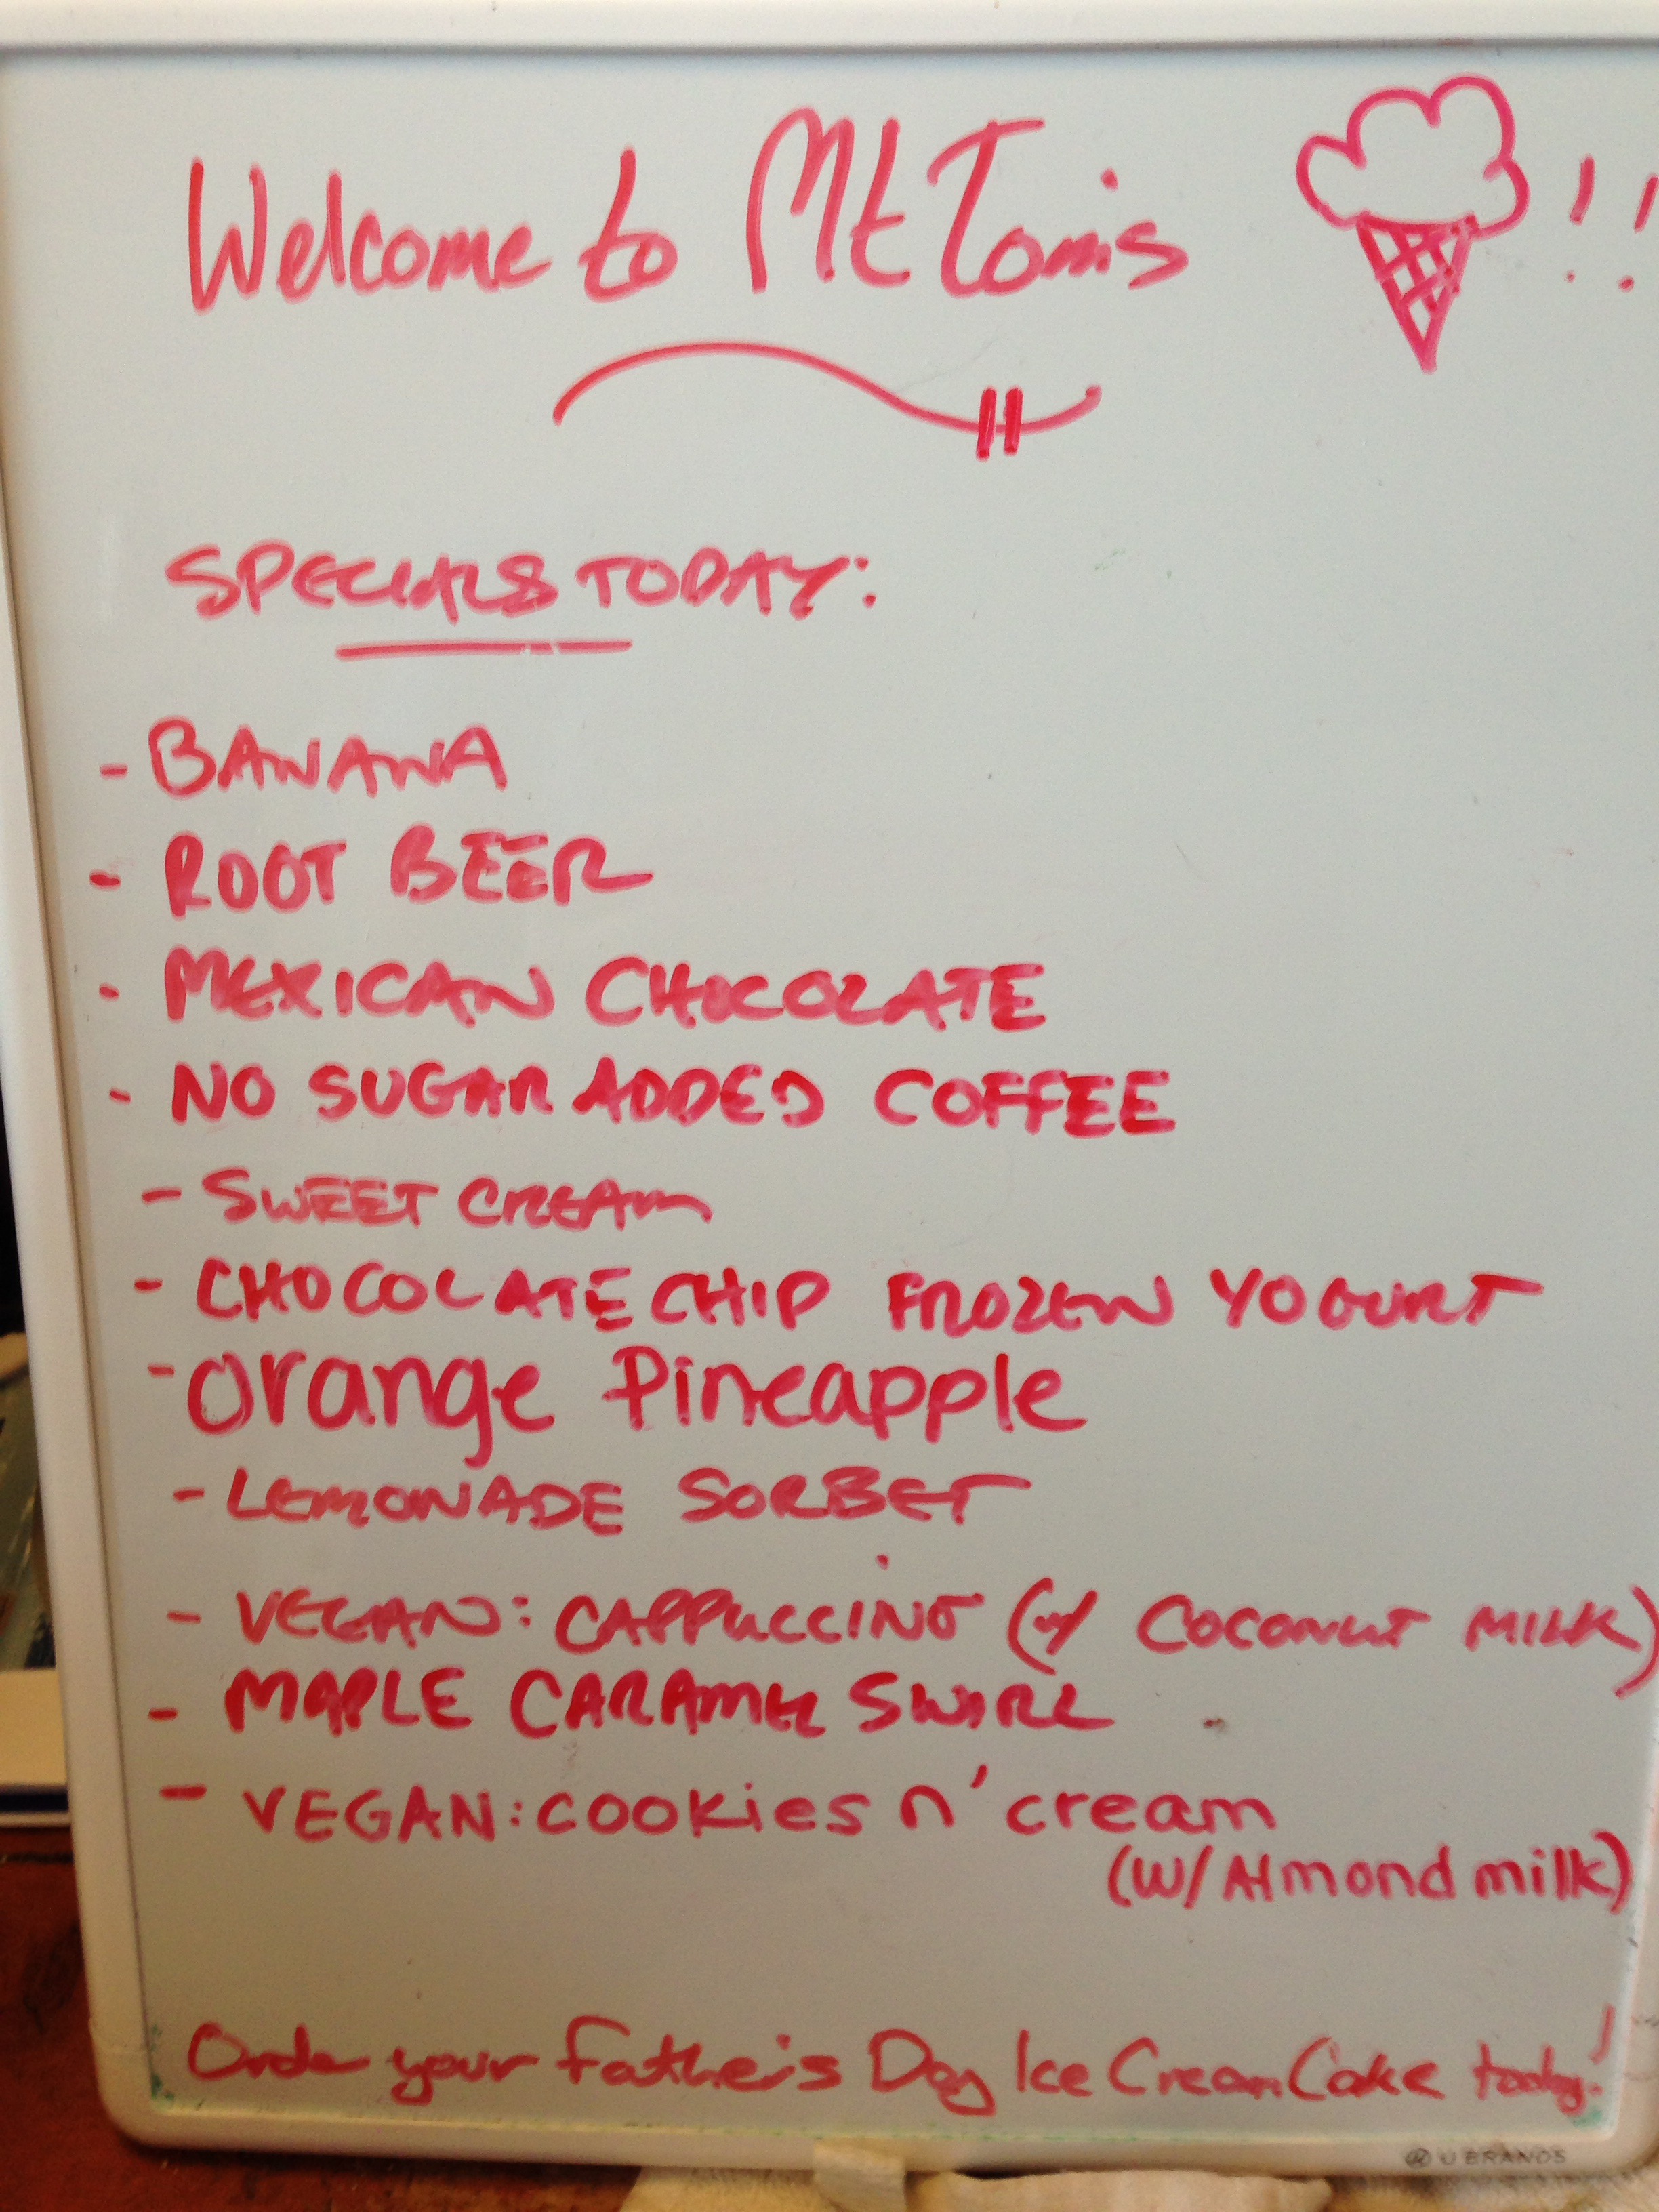 Welcome to Mt Tom's !!
SPECIALS TODAY:
- BANANA
- ROOT BEER
- MEXICAN CHOCOLATE
- NO SUGAR ADDED COFFEE
- SWEET CREAM
- CHOCOLATE CHIP FROZEN YOGURT
- Orange Pineapple
- LEMONADE SORBET
- VEGAN: CAPPUCCINO (w/ COCONUT MILK)
- MAPLE CARAMEL SWIRL
- VEGAN: COOKies n' cream
(W/ Almond milk)
Order your Father's Day Ice Cream Cake today!
U BRANDS